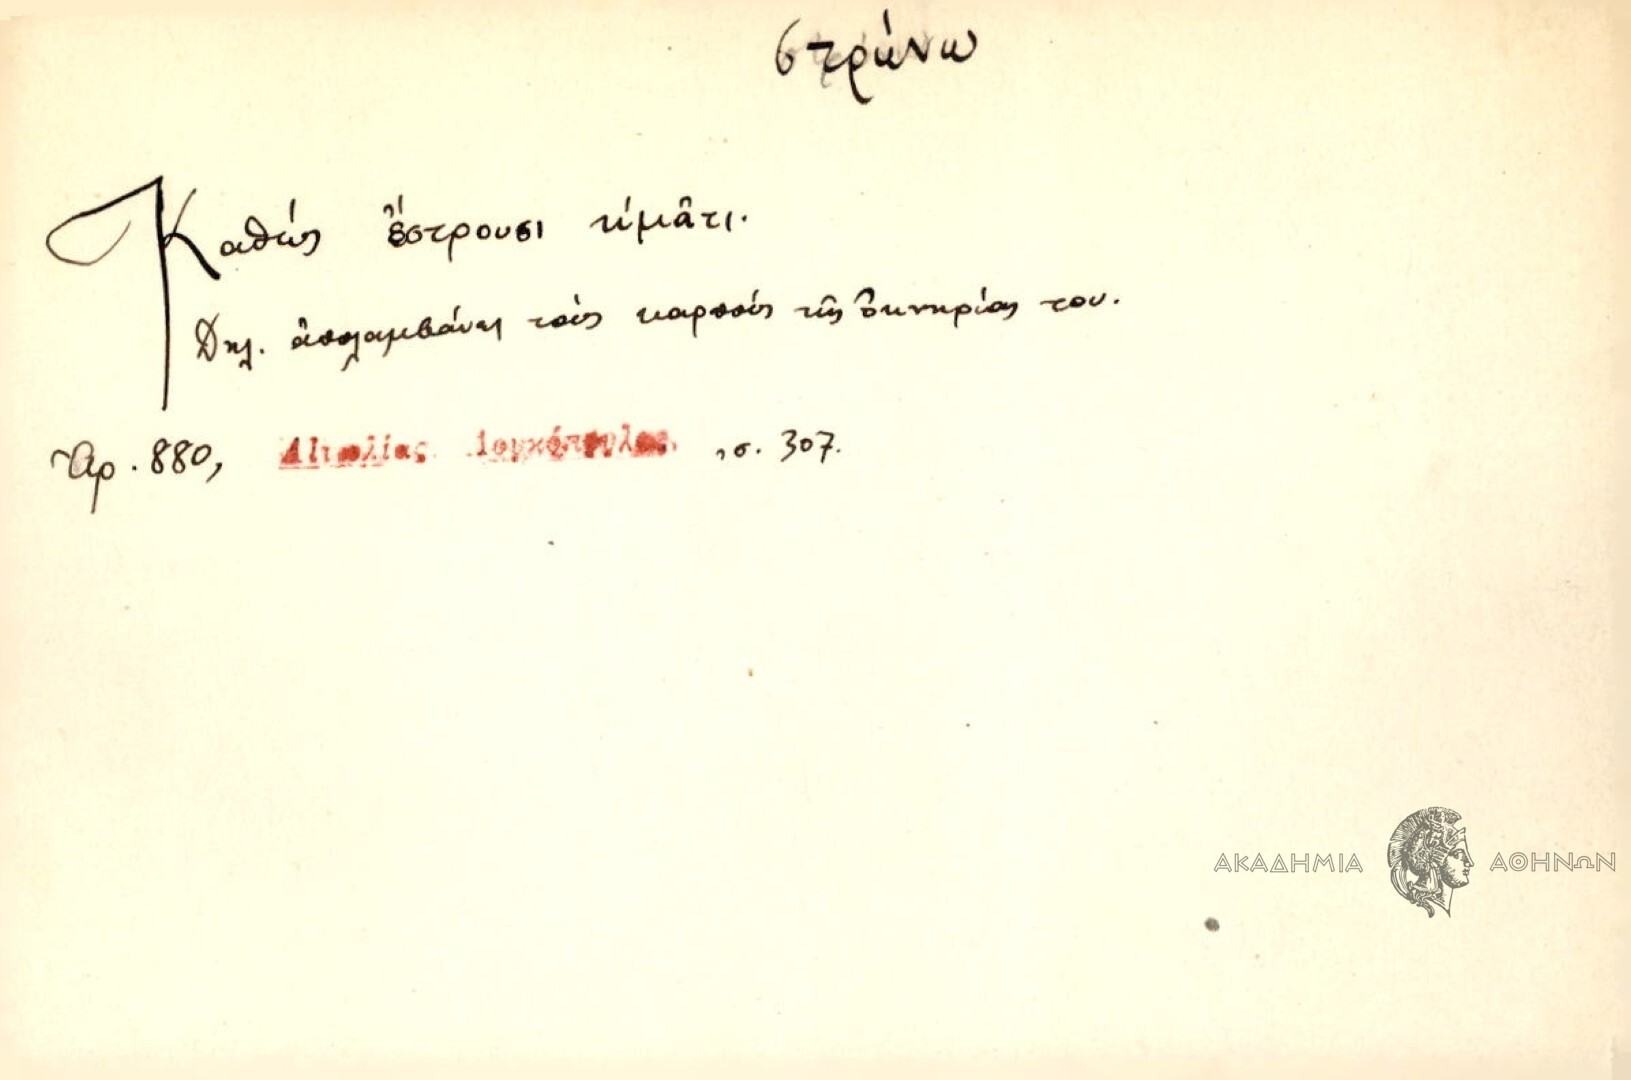 στρώνω
Καθώς ἔστρουσι κ'μᾶτι.
Δηλ. ἀπολαμβάνει τοὺς καρποὺς τῆς ὀκνηρίας του.
Ἀρ. 880, Αἰτωλίας Λουκόπουλος, σ. 307.
ΑΚΑΔΗΜΙΑ ΑΘΗΝΩΝ